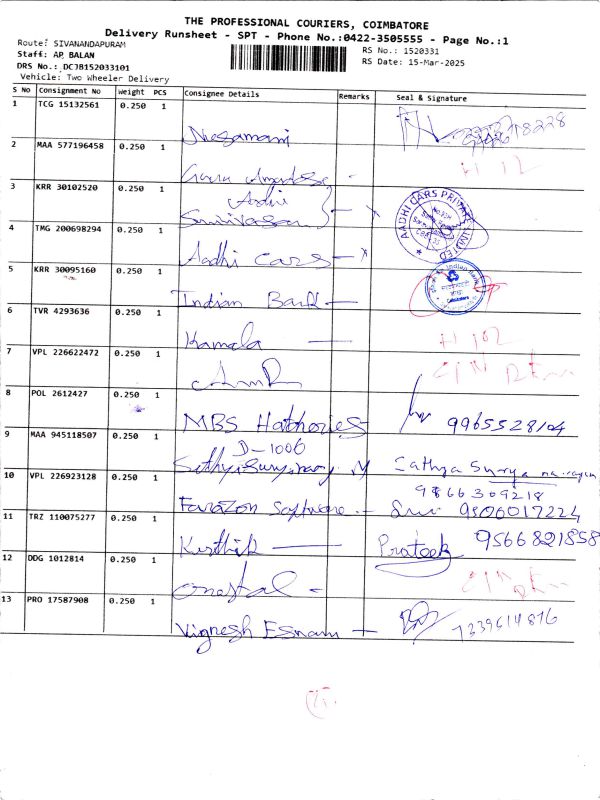 THE PROFESSIONAL COURIERS, COIMBATORE
Delivery Runsheet - SPT - Phone No.:0422-3505555 - Page No.:1
Route: SIVANANDAPURAM
RS No.: 1520331
Staff: AP BALAN
RS Date: 15-Mar-2025
DRS No.: DCJB152033101
Vehicle: Two Wheeler Delivery
S No Consignment No Weight PCS Consignee Details Remarks Seal & Signature
1 TCG 15132561 0.250 1
2 MAA 577196458 0.250 1
3 KRR 30102520 0.250 1
Srinivasan
AADHI CARS PRIVATE LIMITED
4 TMG 200698294 0.250 1 Aadhi Cars
5 KRR 30095160 0.250 1 Indian Bank
6 TVR 4293636 0.250 1 Kamala
7 VPL 226622472 0.250 1
8 POL 2612427 0.250 1 MBS Hatheries 9965528104
D-1006
9 MAA 945118507 0.250 1 Sathya Surya narayan
9866309218
10 VPL 226923128 0.250 1 Farazon Software 9806017224
11 TRZ 110075277 0.250 1 Karthik Prateek 9566821858
12 DDG 1012814 0.250 1 Onestal
13 PRO 17587908 0.250 1 Vignesh 7339614816